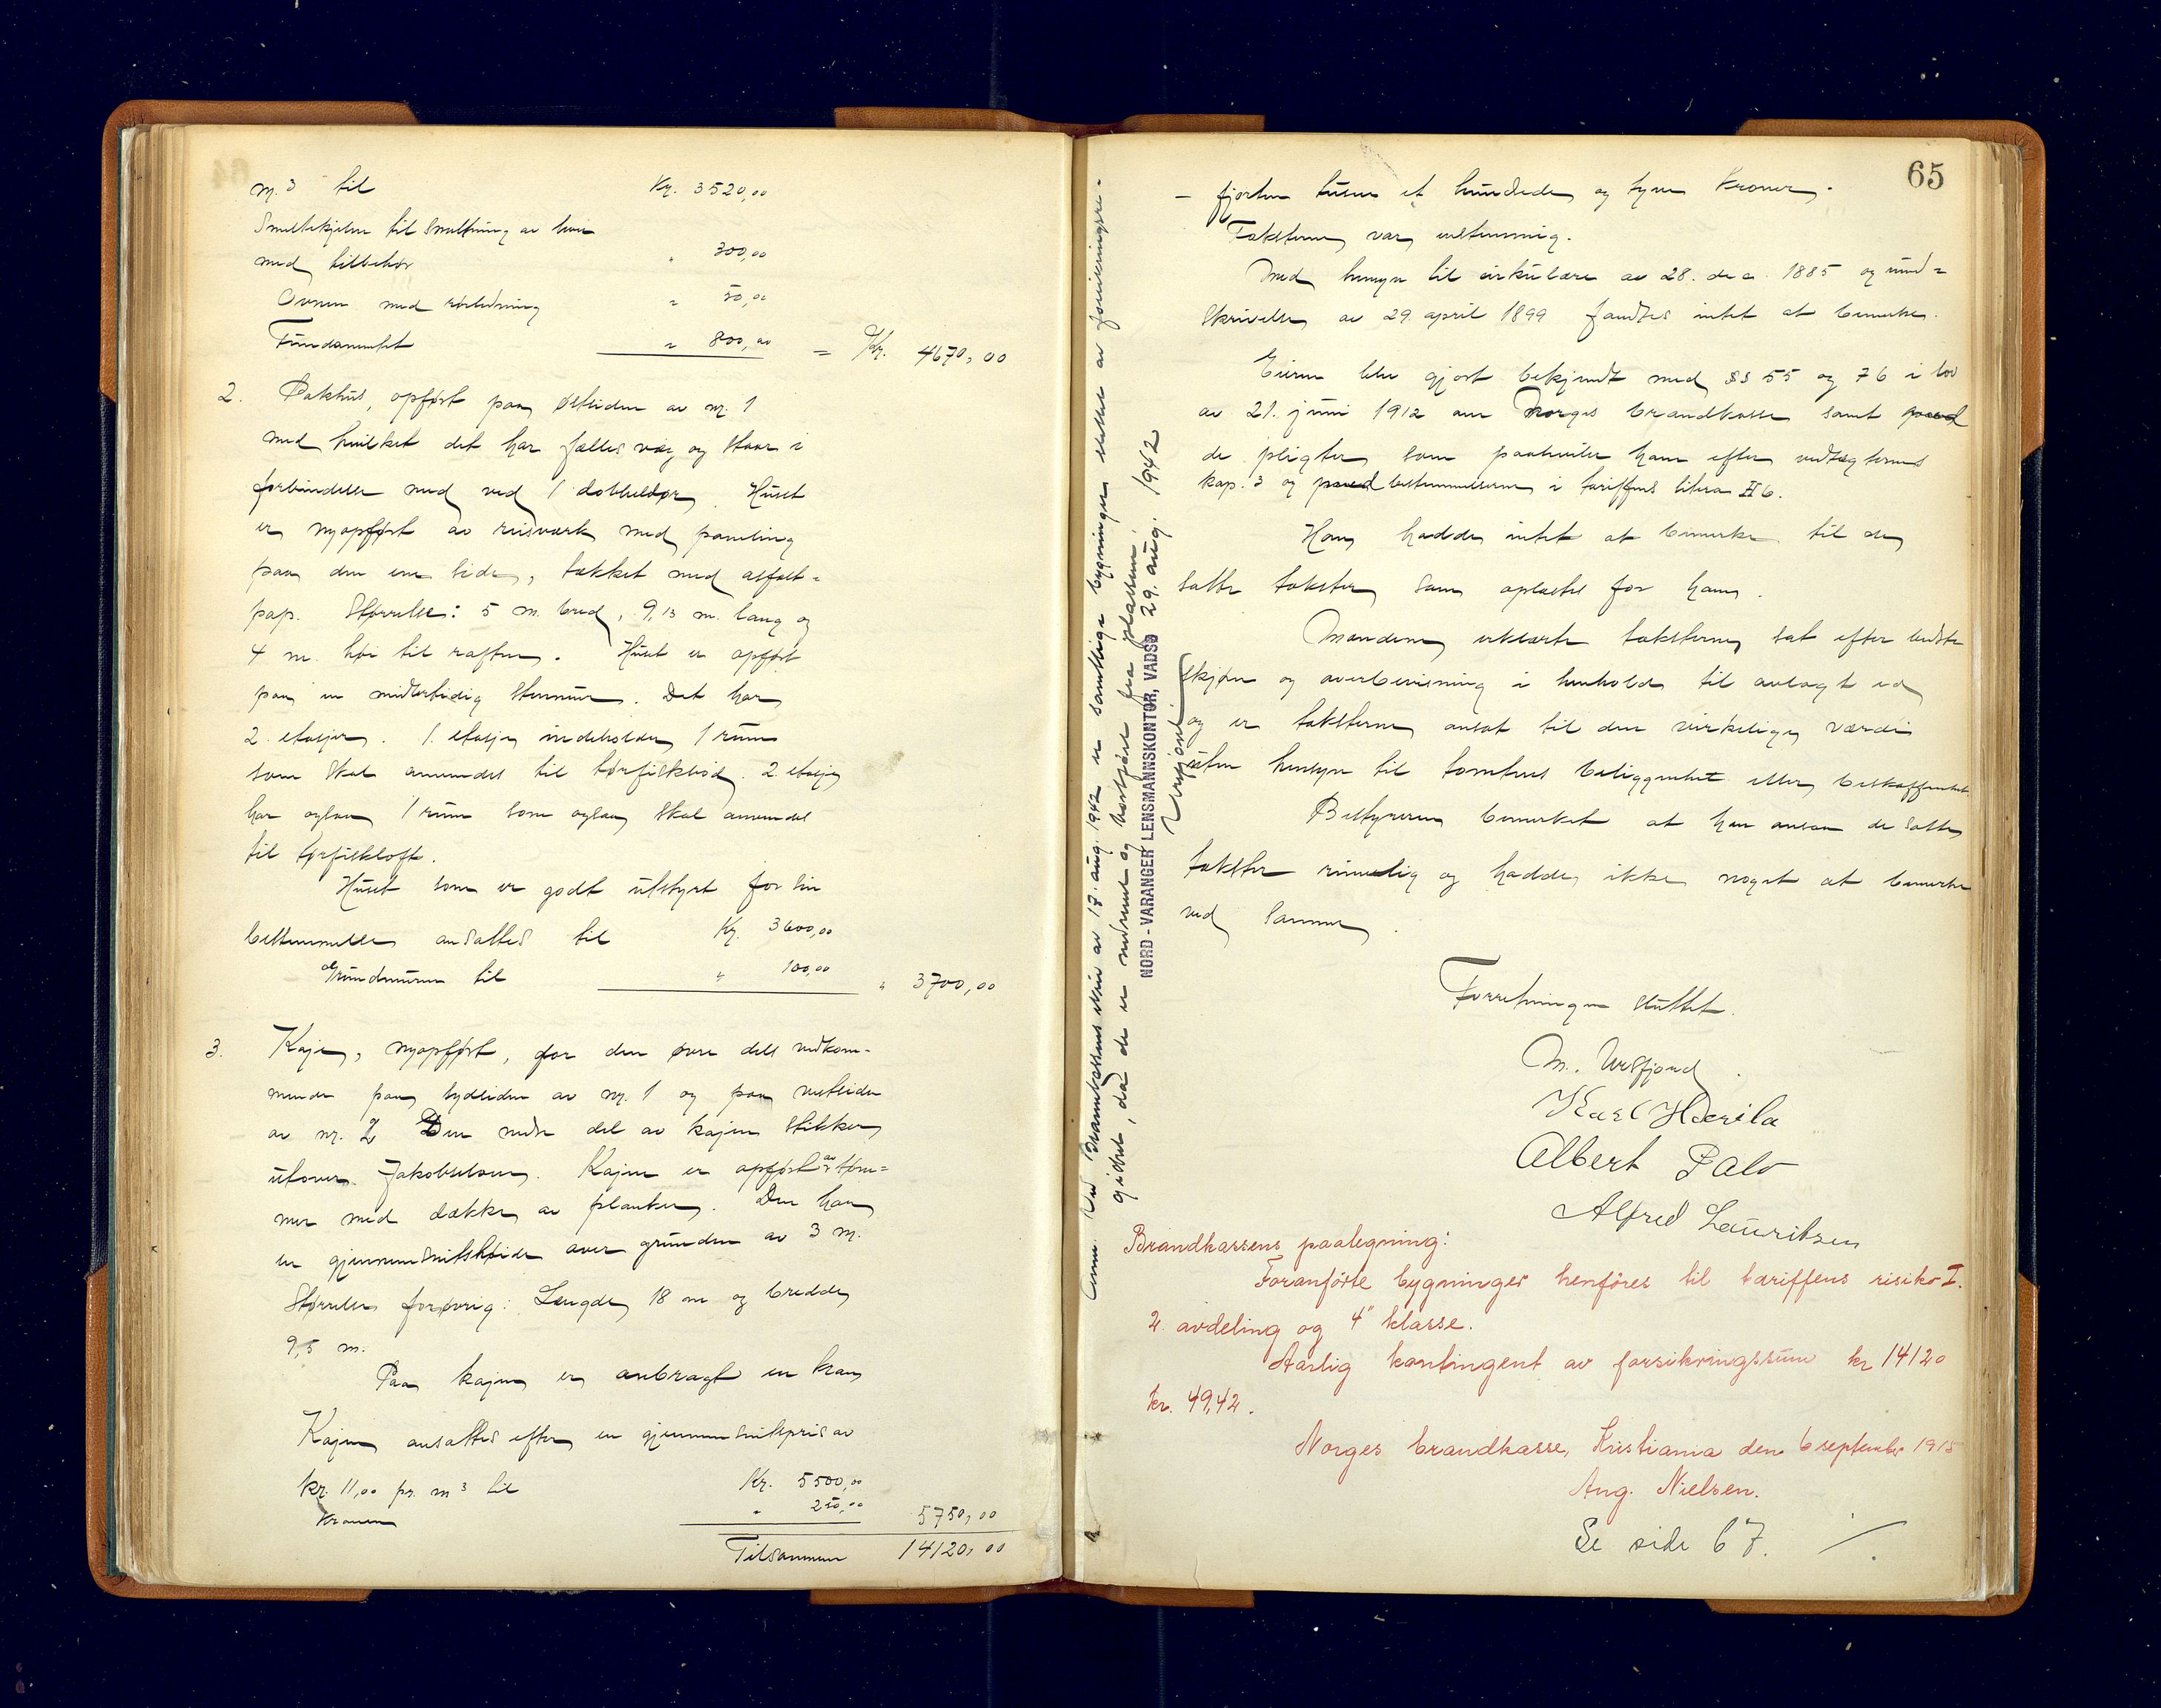 m.3 til Kr. 3520,00
Smeltekjelen til smeltning av
med tilbehør " 300,00
Ovnen med rørledning " 50,00
Fundamentet " 800,00 = Kr. 4670,00
2. Pakhus, opført paa østsiden av nr. 1
med hvilket det har fælles væg og staar i
forbindelse med ved 1 dobbeldør. Huset
er nyopført av reisværk med paneling
paa den ene side, tækket med asfalt-
pap. Størrelse: 5 m. bred, 9,13 m. lang og
4 m. høi til raften. Huset er opført
paa en midlertidig stenmur. Det har
2 etasjer. 1. etasje indeholder 1 rum
som skal anvendes til tørfiskbod. 2 etasje
har ogsaa 1 rum som ogsaa skal anvendes
til tørfiskloft.
Huset som er godt utstyrt for sin
bestemmelse ansattes til Kr. 3600,00
Grundmuren til " 100,00 " 3700,00
3. Kaje, nyopført, for den øvre dels vedkom-
mende paa sydsiden av nr. 1 og paa vestsiden
av nr. 2 Den nedre del av kajen stikker
utover Jakobselven. Kajen er opført av tøm-
mer med dække av planker. Den har
en gjennemsnitshøide over grunden av 3 m.
Størrelse forøvrig: Længde 18 m og bredde
9,5 m.
Paa kajen er anbragt en kran
Kajen ansattes efter en gjennemsnitspris av
kr. 11,00 pr. m3 til Kr. 5500,00
Kranen " 250,00 5750,00
Tilsammen 14120,00
65
- fjorten tusen et hundrede og tyve kroner.
Taksterne var enstemmig.
Med hensyn til cirkulære av 28. dec. 1885 og rund-
skrivelse av 29. april 1899 fandtes intet at bemerke.
Eieren blev gjort bekjendt med §§ 55 og 76 i lov
av 21. juni 1912 om Norges brandkasse samt
de pligter som paahviler ham efter vedtægternes
kap. 3 og bestemmelserne i tariffens litra H 6.
Han hadde intet at bemerke til de
satte takster som oplæstes for ham.
Mændene erklærte taksterne sat efter bedste
skjøn og overbevisning i henhold til avlagt ed
og er taksterne ansat til den virkelige værdi
uten hensyn til tomtens beliggenhet eller beskaffenhet.
Bestyreren bemerket at han ansaa de satte
takster rimelig og hadde ikke noget at bemerke
ved samme.
Forretningen sluttet.
M.
Karl
Albert Palo
Alfred Lauritsen
Brandkassens paategning:
Foranförte bygninger henföres til tariffens risiko I.
2. avdeling og 4" klasse.
Aarlig kontingent av forsikringssum kr 14120
kr. 49,42.
Norges brandkasse, Kristiania den 6 september 1915
Aug. Nielsen.
Se side 67. ./.
Anm. Ved Brandkassens skriv av 17. aug. 1942 er samtlige bygninger slettet av forsikringsre-
gistret, da de er nedrevet og bortført fra plassen.
NORD-VARANGER LENSMANNSKONTOR, VADSØ 29. aug. 1942